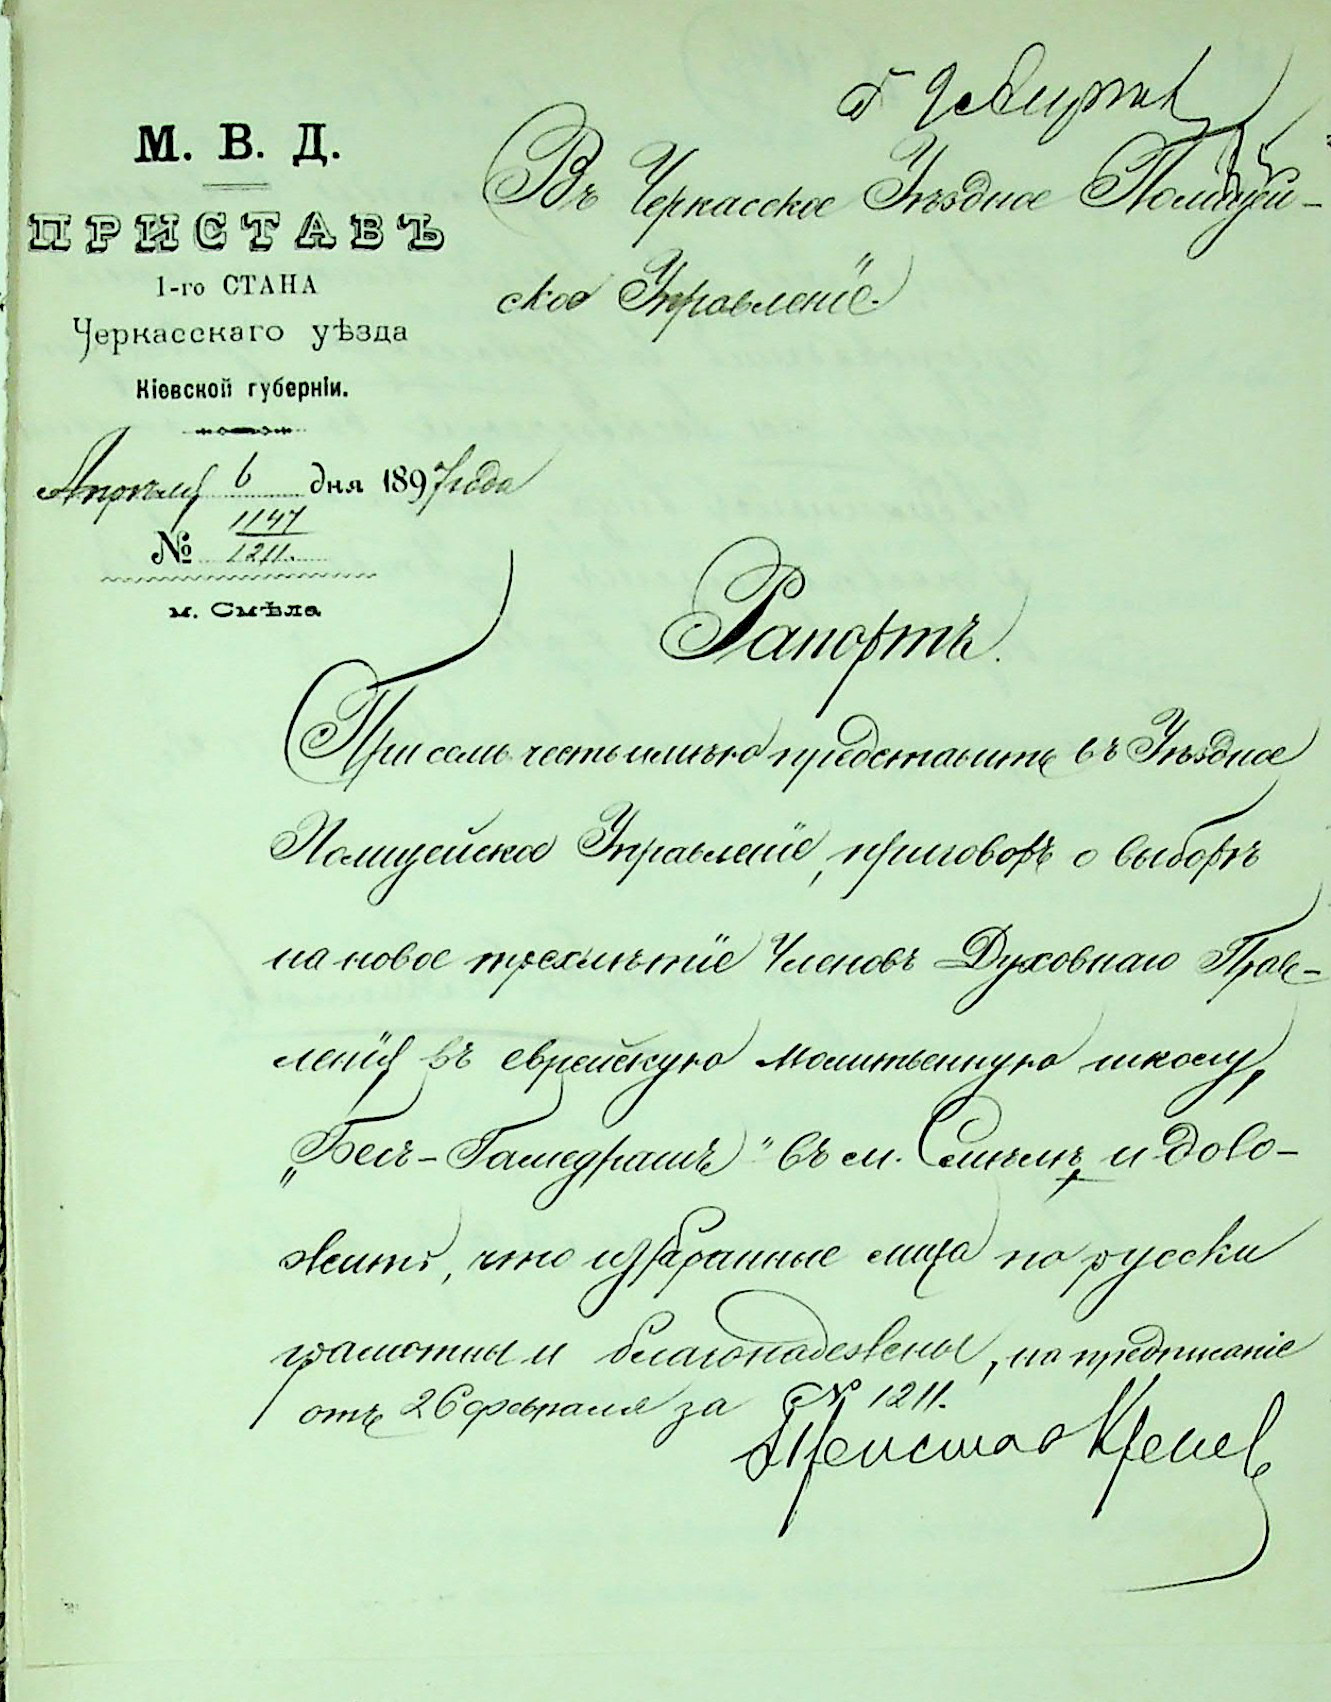 М. В. Д.
ПРИСТАВЪ
1-го СТАНА
Черкасскаго уѣзда
Кіевской губерніи.
Апрѣля 6 дня 1897 года
№ 1147
1211.
м. Смѣла
Въ Черкасское Уѣздное Полицей-
ское Управленіе.
Рапортъ.
При семъ честь имѣю представить въ Уѣздное
Полицейское Управленіе, приговоръ о выборѣ
на новое трехлѣтіе Членовъ Духовнаго Прав-
ленія въ еврейскую молитвенную школу,
„Бесъ-Гамедрашъ" въ м. Смѣлѣ и доло-
жить, что избранные лица по русски
грамотны и благонадежны, на предписаніе
отъ 26 февраля за № 1211.
Приставъ